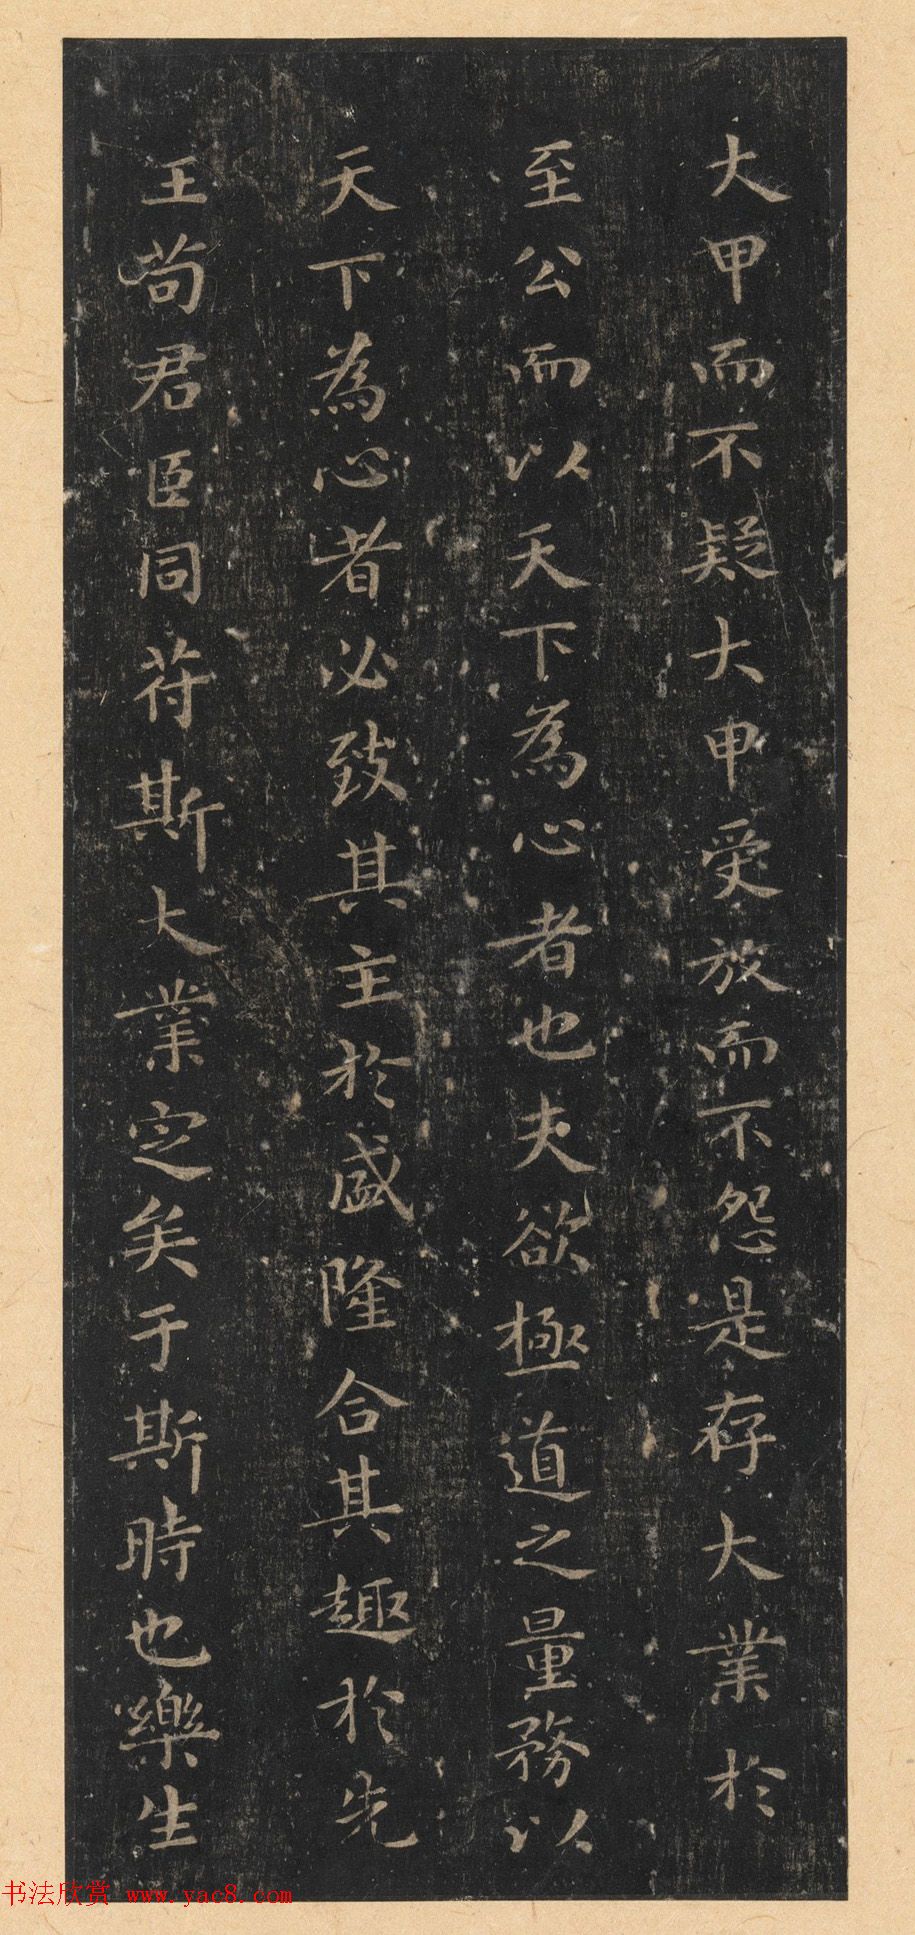 大甲而不疑大甲受放而不怨是存大業於
至公而以天下為心者也夫欲極道之量務以
天下為心者必致其主於盛隆合其趣於先
王苟君臣同苻斯大業定矣于斯時也樂生
书法欣赏 www.yac8.com